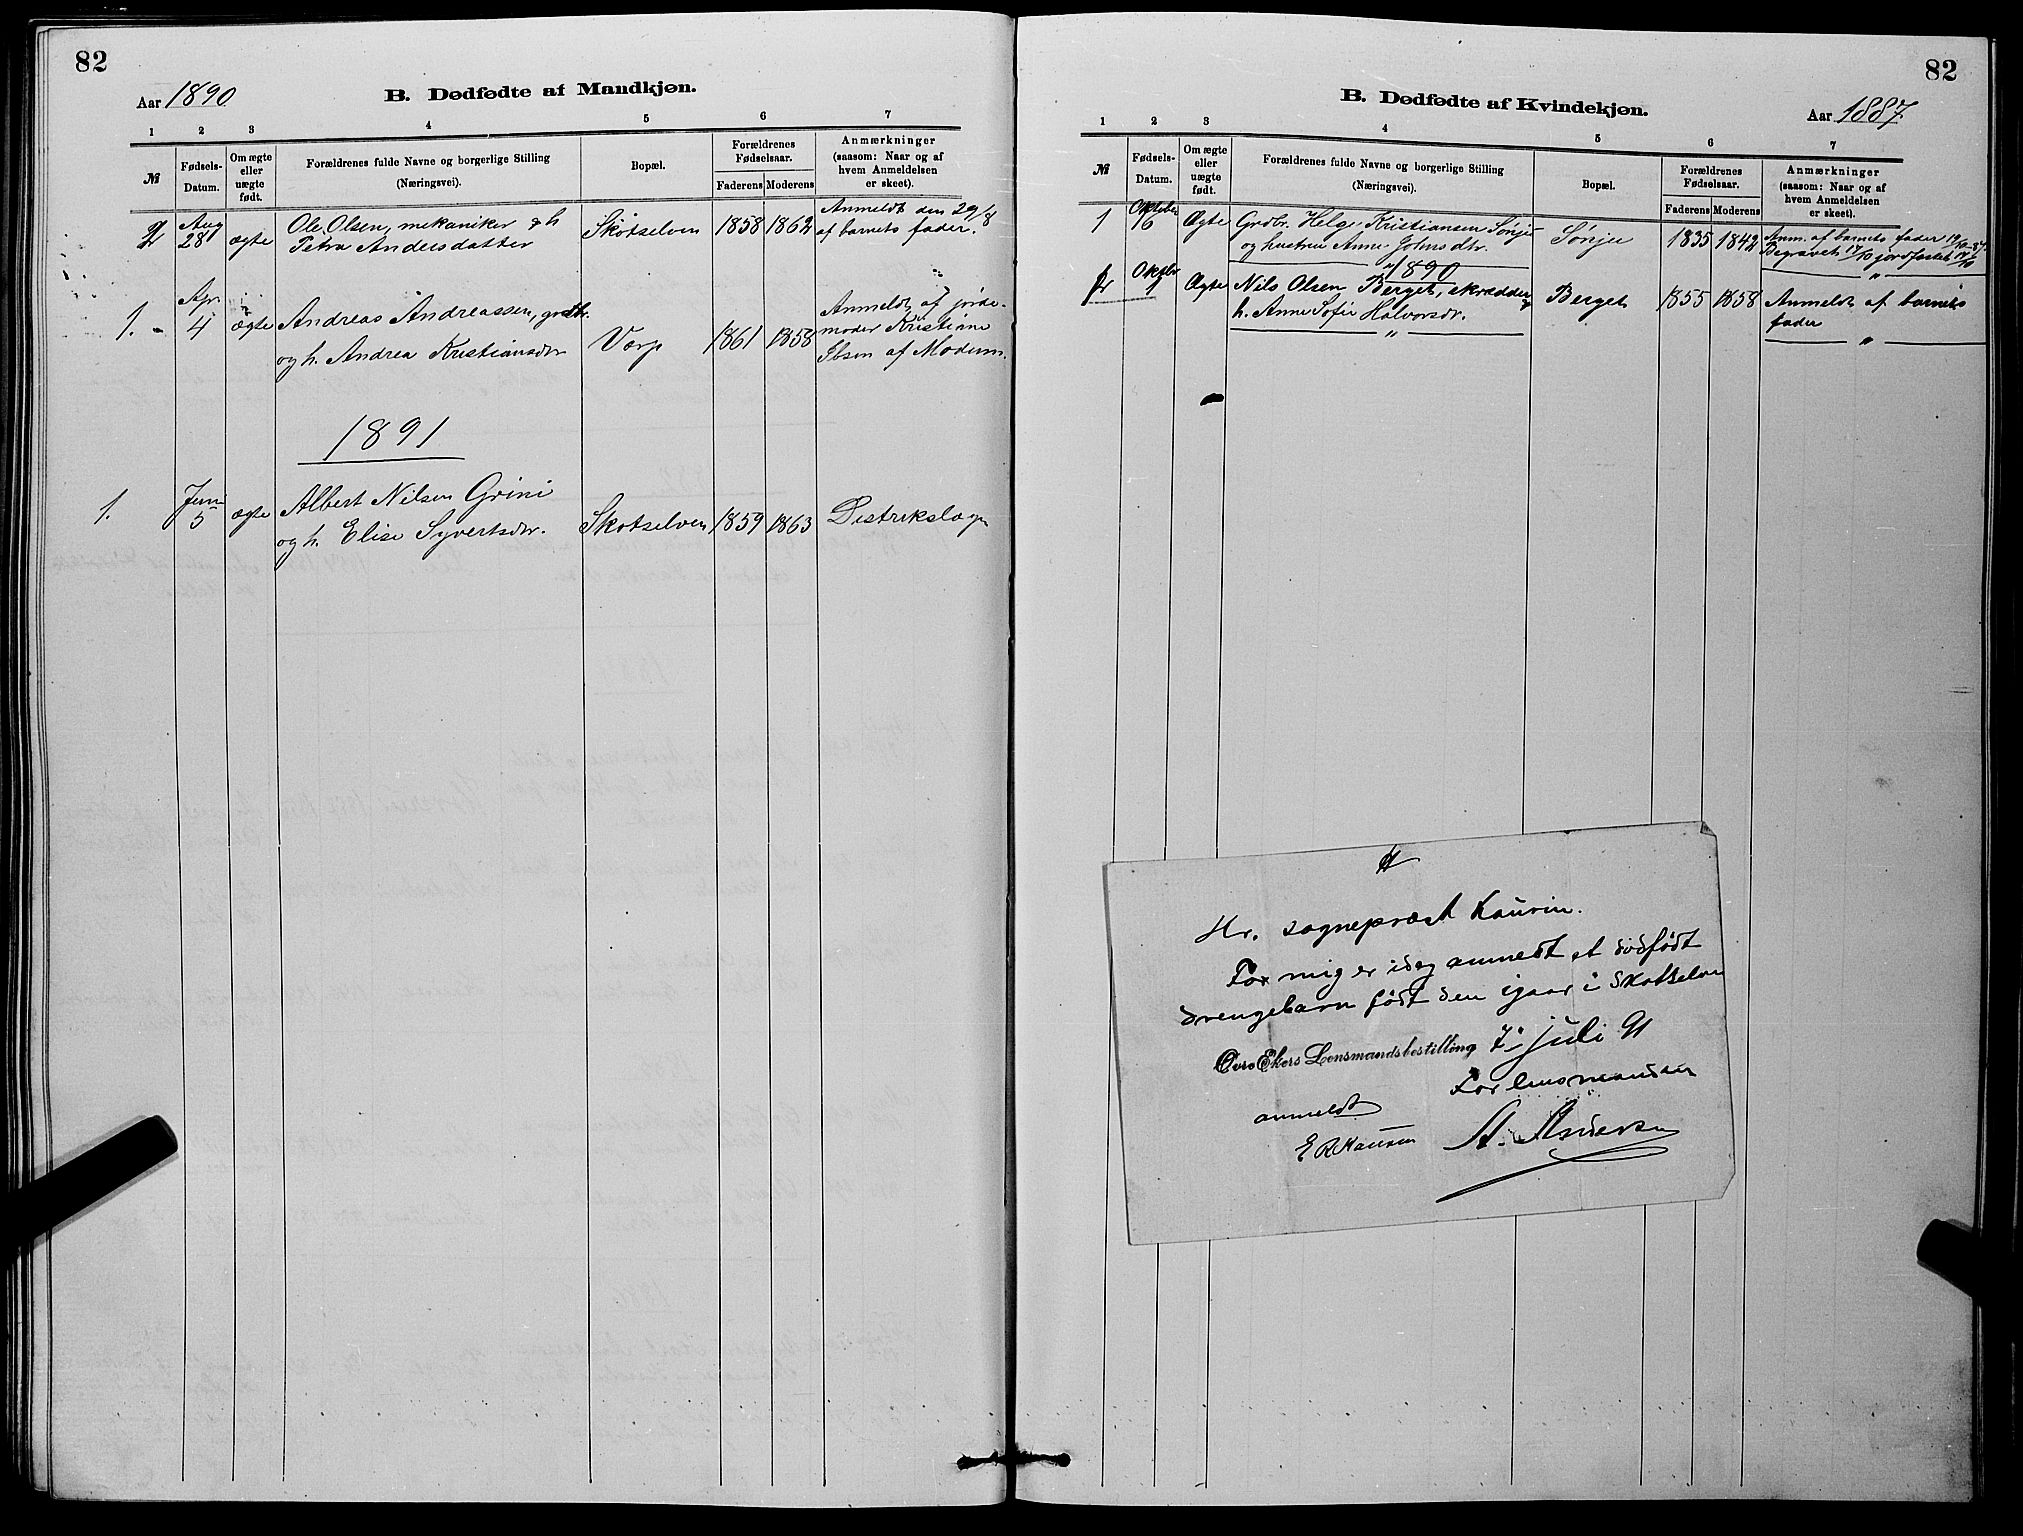 82
Aar 1890
B. Dødfødte af Mandkjøn.
1 2 3 4 5 6 7
№
Fødsels-
Datum.
Om ægte
eller
uægte
født.
Forældrenes fulde Navne og borgerlige Stilling
(Næringsvei).
Bopæl.
Forældrenes
Fødselsaar.
Faderens Moderens
Anmærkninger
(saasom: Naar og af
hvem Anmeldelsen
er skeet).
2
Aug
28
ægte
Ole Olsen, mekaniker & h
Petra Andersdatter
Skotselven
1858 1862
Anmeldt den 29/8
af barnets fader.
1.
Apr.
4
ægte
Andreas Andreassen, grdbr.
og h. Andrea Kristiansdtr
Vorp
1861 1858
Anmeldt af jorde-
moder Kristiane
Ibsen af Modum.
1891
1.
Juni
5
ægte
Albert Nilsen Grini
og h. Elise Syvertsdtr.
Skotselven
1859 1863
Distriktslæge
82
B. Dødfødte af Kvindekjøn.
Aar 1887.
1 2 3 4 5 6 7
№
Fødsels-
Datum.
Om ægte
eller
uægte
født.
Forældrenes fulde Navne og borgerlige Stilling
(Næringsvei).
Bopæl.
Forældrenes
Fødselsaar.
Faderens Moderens
Anmærkninger
(saasom: Naar og af
hvem Anmeldelsen
er skeet).
1
Oktober
16
Ægte
Grdbr. Helge Kristiansen Sønju
og hustru Anne Johnsdtr.
Sønju
1835 1842
Anm. af barnets fader
Begravet jordfæstet
1890
Oktbr
Ægte
Nils Olsen Berget, skrædder
h. Anne Sofie Halvorsdr.
Berget
1855 1858
Anmeldt af barnets
fader
Hr. sogneprest Kaurin.
For mig er idag anmeldt et dødfødt
drengebarn født den igaar i Skotselven
Øvre Ekers Lensmandsbestilling 7. juli 91
For lensmanden
A. Andersen
anmeldt
E R Kaurin